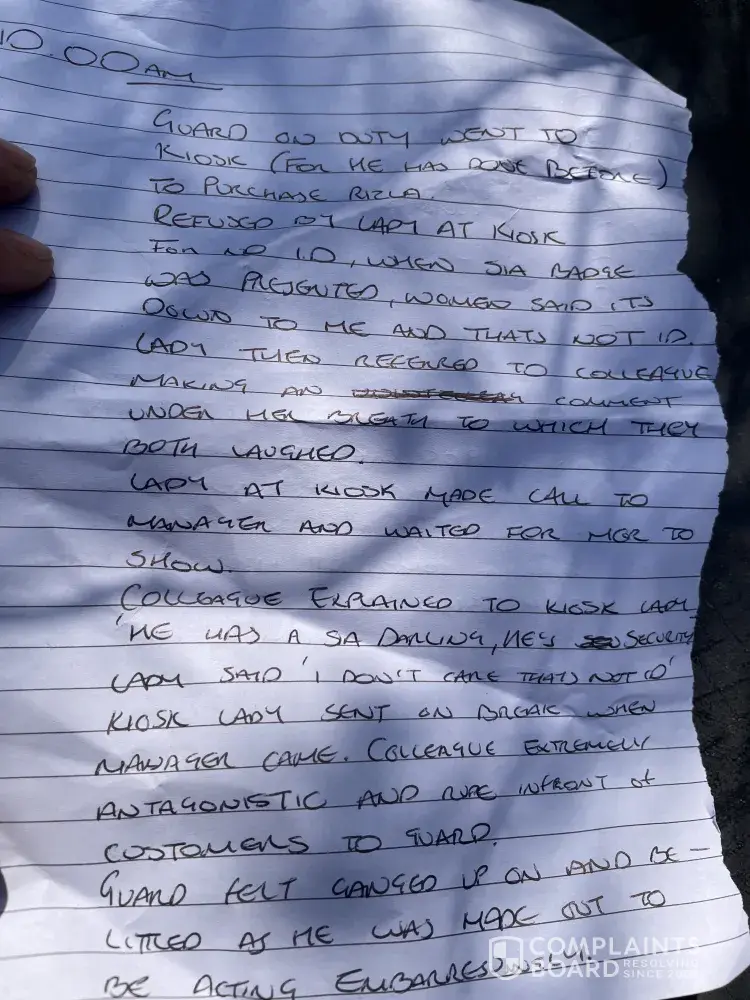 10.00AM
GUARD ON DUTY WENT TO
KIOSK (FOR HE HAS DONE BEFORE)
TO PURCHASE RIZLA.
REFUSED BY LADY AT KIOSK
FOR NO I.D, WHEN SIA BADGE
WAS PRESENTED, WOMEN SAID ITS
DOWN TO ME AND THATS NOT ID.
LADY THEN REFERRED TO COLLEAGUE
MAKING AN COMMENT
UNDER HER BREATH TO WHICH THEY
BOTH LAUGHED.
LADY AT KIOSK MADE CALL TO
MANAGER AND WAITED FOR MGR TO
SHOW.
COLLEAGUE EXPLAINED TO KIOSK LADY
'HE HAS A SIA DARLING, HE'S SECURITY
LADY SAID 'I DON'T CARE THATS NOT ID'
KIOSK LADY SENT ON BREAK WHEN
MANAGER CAME. COLLEAGUE EXTREMELY
ANTAGONISTIC AND RUDE INFRONT OF
CUSTOMERS TO GUARD.
GUARD FELT GANGED UP ON AND BE-
LITTLED AS HE WAS MADE OUT TO
BE ACTING
COMPLAINTS
BOARD RESOLVING
SINCE